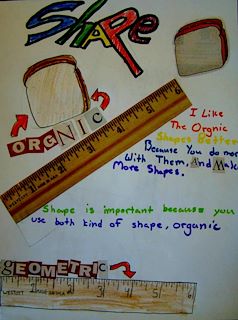 Shape
ORGNIC
I Like
The Orgnic
Shapes Better
Because You do more
With Them, And Make
More Shapes.
Shape is important because you
use both kind of shape, organic
GEOMETRIC
WESTCOTT